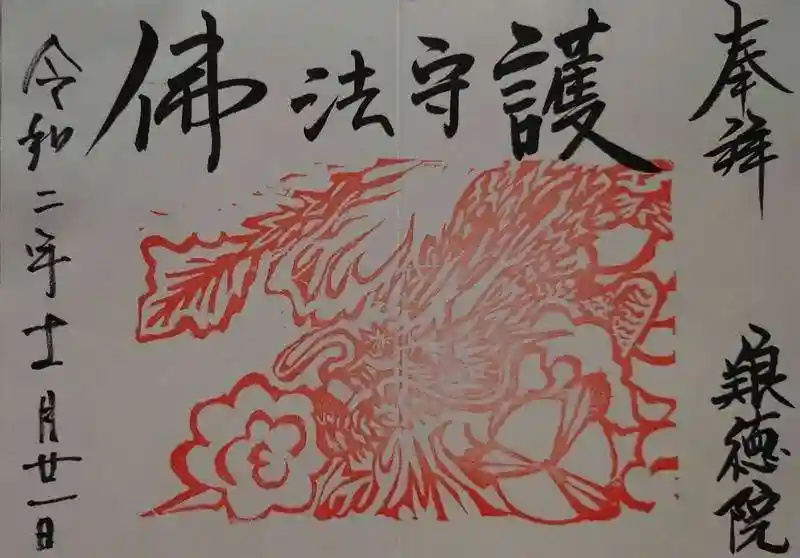 奉拝
徳院
佛法守護
令和二年十一月廿一日